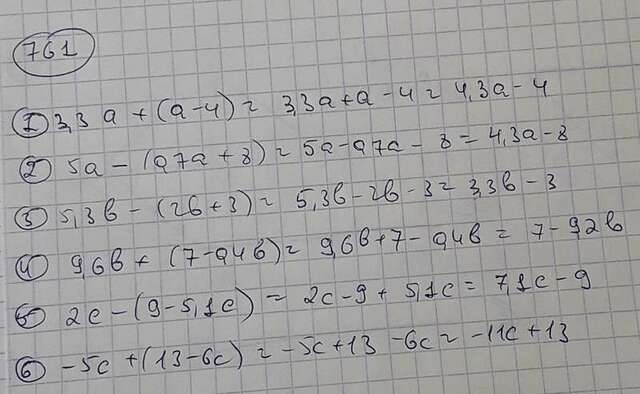 761
1 3,3a + (a-4) = 3,3a+a-4 = 4,3a-4
2 5a - (0,7a+8) = 5a-0,7a-8 = 4,3a-8
3 5,3b - (2b+3) = 5,3b-2b-3 = 3,3b-3
4 9,6b + (7-0,4b) = 9,6b+7-0,4b = 7-9,2b
5 2c-(9-5,1c) = 2c-9+5,1c = 7,1c-9
6 -5c+(13-6c) = -5c+13-6c = -11c+13